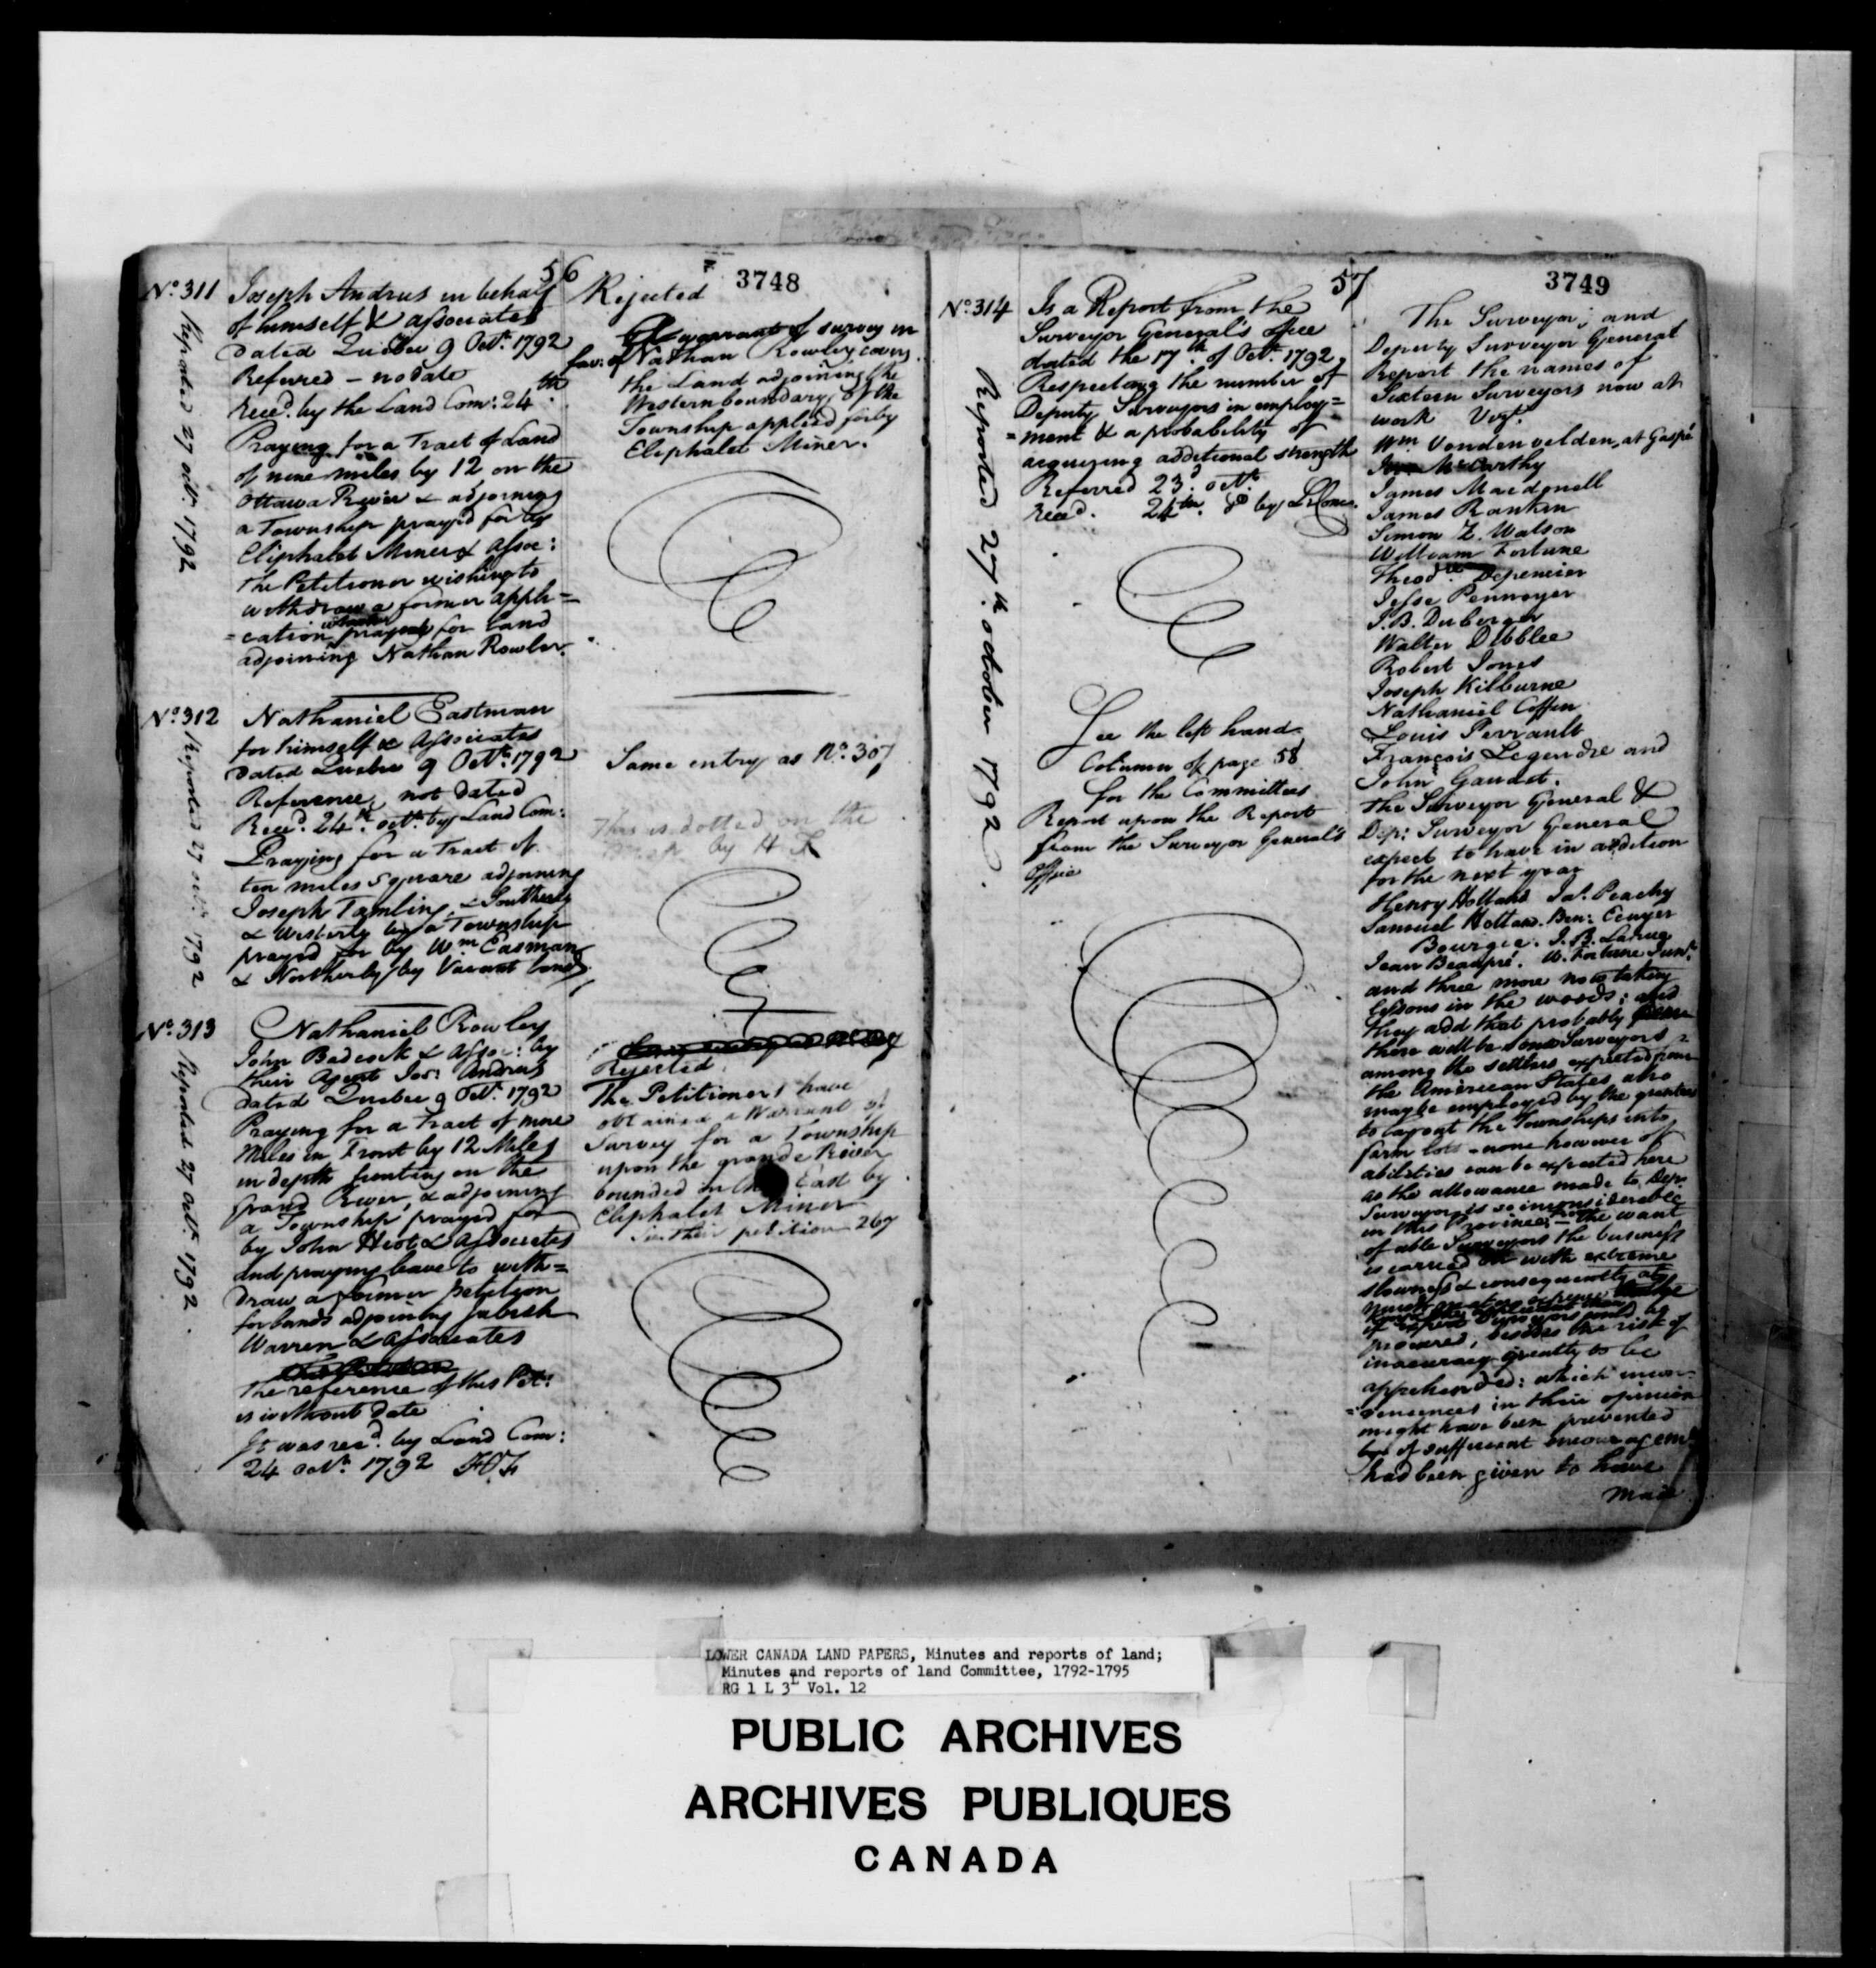 56
3748
No. 311
Reported 27 octr. 1792
Joseph Andrus in behalf
of himself & associates
dated Quebec 9 Octr. 1792
Referred - no date
Recd. by the Land Com: 24th.
Praying for a Tract of Land
of nine miles by 12 on the
Ottawa River & adjoining
a Township prayed for by
Eliphalet Miner & Assoc:
The Petitioner wishing to
withdraw a former appli=
=cation for Land
adjoining Nathan Rowler.
Rejected
warrant of survey in
fav. of Nathan Rowley covers
the Land adjoining the
Western boundary of the
Township applied for by
Eliphalet Miner.
No. 312
Reported 27 octr. 1792
Nathaniel Eastman
for himself & Associates
dated Quebec 9 Octr. 1792
Reference, not dated
Recd. 24th. octr. by Land Com:
Praying for a Tract of
ten miles square adjoining
Joseph Tamling, & Southerly
& Westerly by a Township
prayed for by Wm. Easman
& Northerly by Vacant lands
Same entry as No. 307
This is dotted on the
Map by H F
No. 313
Reported 27 octr. 1792.
Nathaniel Rowley
John Badcock & Assoc: by
their Agent Jos: Andrus
dated Quebec 9 Octr. 1792
Praying for a Tract of nine
Miles in Front by 12 Miles
in depth fronting on the
Grand River, & adjoining
a Township prayed for
by John Hiot & Associates
and praying leave to with=
draw a former petition
for lands adjoining Jabish
Warren & Associates
The reference of this Pet:
is without date
It was recd. by Land Com:
24 octr. 1792 HF
Rejected
The Petitioners have
obtained a Warrant of
Survey for a Township
upon the grande River
bounded on the East by
Eliphalet Miner
in their petition 267
57
3749
No. 314
Reported 27th. october 1792.
Is a Report from the
Surveyor General's office
dated the 17th. of Octr. 1792
Respecting the number of
Deputy Surveyors in employ=
=ment & a probability of
acquiring additional strength
Referred 23d. octr.
Recd. 24th. do by L Com.
See the left hand
Column of page 58
for the Committees
Report upon the Report
from the Surveyor General's
Office
The Surveyor; and
Deputy Surveyor General
Report the names of
Sixteen Surveyors now at
work Vizt.
Wm. Vondenvelden, at Gaspé
McCarthy
James Macdonell
James Rankin
Simon Z. Watson
William Fortune
Theodre. Depencier
Jesse Pennoyer
J.B. Duberger
Walter Dibblee
Robert Jones
Joseph Kilburne
Nathaniel Coffin
Louis Perrault
François Legendre and
John Gaudet.
The Surveyor General &
Dep: Surveyor General
expect to have in addition
for the next year
Henry Holland Ja: Peachy
Samuel Holland. Ben: Ecuyer
Bourgee. J.B. Larue
Jean Beaupré. W. Fortune Junr.
and three more now taking
lessons in the woods: and
they add that probably
there will be some Surveyors
among the settlers expected from
the American States who
may be employed by the grantees
to lay out the Townships into
farm lots - none however of
abilities can be expected here
as the allowance made to Dep.
Surveyors is so inconsiderable
in this Province, - from the want
of able Surveyors the business
is carried on with extreme
slowness & consequently at
procured, besides the risk of
inaccuracy greatly to be
apprehended: which incon-
=veniences in their opinion
might have been prevented
if sufficient encouragemt.
had been given to have
made
LOWER CANADA LAND PAPERS, Minutes and reports of land;
Minutes and reports of land Committee, 1792-1795
RG 1 L 3L Vol. 12
PUBLIC ARCHIVES
ARCHIVES PUBLIQUES
CANADA